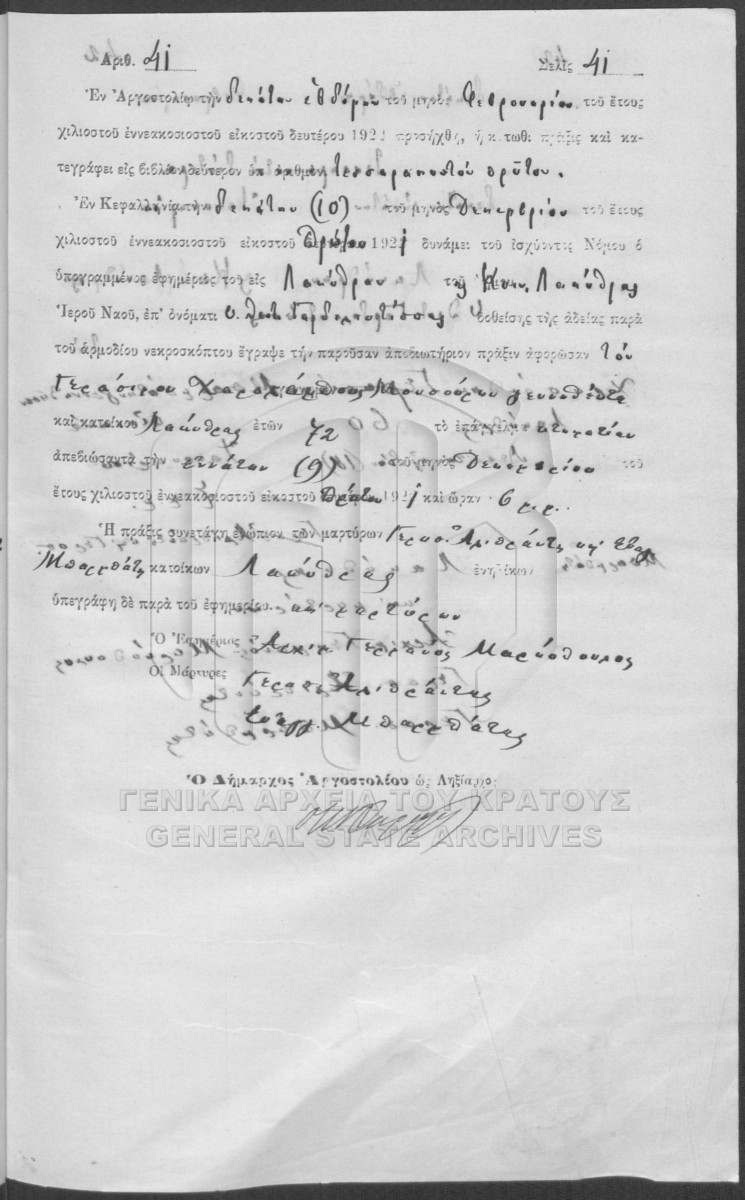 Ἀριθ. 41 Σελὶς 41
Ἐν Ἀργοστολίῳ τὴν δεκάτην ἑβδόμην τοῦ μηνὸς Φεβρουαρίου τοῦ ἔτους
χιλιοστοῦ ἐννεακοσιοστοῦ εἰκοστοῦ δευτέρου 1922 προσήχθη, ἡ κάτωθι πρᾶξις καὶ κα-
τεγράφει εἰς βιβλίον δεύτερον ὑπ' ἀριθμὸν τεσσαρακοστοῦ πρῶτου.
Ἐν Κεφαλληνίᾳ τὴν δεκάτην (10) τοῦ μηνὸς Δεκεμβρίου τοῦ ἔτους
χιλιοστοῦ ἐννεακοσιοστοῦ εἰκοστοῦ πρώτου 1921 δυνάμει τοῦ ἰσχύοντος Νόμου ὁ
ὑπογραμμένος ἐφημέριος τοῦ εἰς Λακύθραν τοῦ Λακύθρας
Ἱεροῦ Ναοῦ, ἐπ' ὀνόματι δοθείσης τῆς ἀδείας παρὰ
τοῦ ἁρμοδίου νεκροσκόπτου ἔγραψε τὴν παροῦσαν ἀποβιωτήριον πρᾶξιν ἀφορῶσαν τὸν
Γεράσιμον Χαραλάμπους Μουσούρην γεννηθέντα
καὶ κατοίκου Λακύθρας ἐτῶν 72 τὸ ἐπάγγελμα κτηματίαν
ἀπεβιώσαντα τὴν ἐννάτην (9) τοῦ μηνὸς Δεκεμβρίου τοῦ
ἔτους χιλιοστοῦ ἐννεακοσιοστοῦ εἰκοστοῦ πρώτου 1921 καὶ ὥραν 6 μ.μ.
Ἡ πρᾶξις συνετάγη ἐνώπιον τῶν μαρτύρων Γερασ. Ἀλιπράντη καὶ Εὐαγ.
Μπαρμπάτη κατοίκων Λακύθρας ἐνηλίκων
ὑπεγράφη δὲ παρὰ τοῦ ἐφημερίου. καὶ μαρτύρων
Ὁ Ἐφημέριος Γερμανὸς Μαρκόπουλος
Οἱ Μάρτυρες Γερασ. Ἀλιπράντης
Εὐάγγ. Μπαρμπάτης
Ὁ Δήμαρχος Ἀργοστολίου ὡς Ληξίαρχος
ΓΕΝΙΚΑ ΑΡΧΕΙΑ ΤΟΥ ΚΡΑΤΟΥΣ
GENERAL STATE ARCHIVES